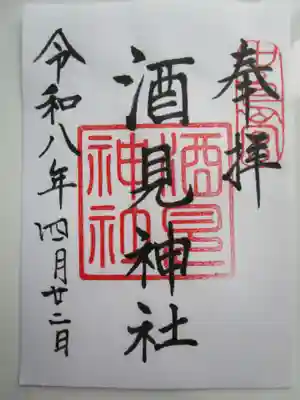 奉拝
酒見神社
酒見
神社
令和八年四月廿二日